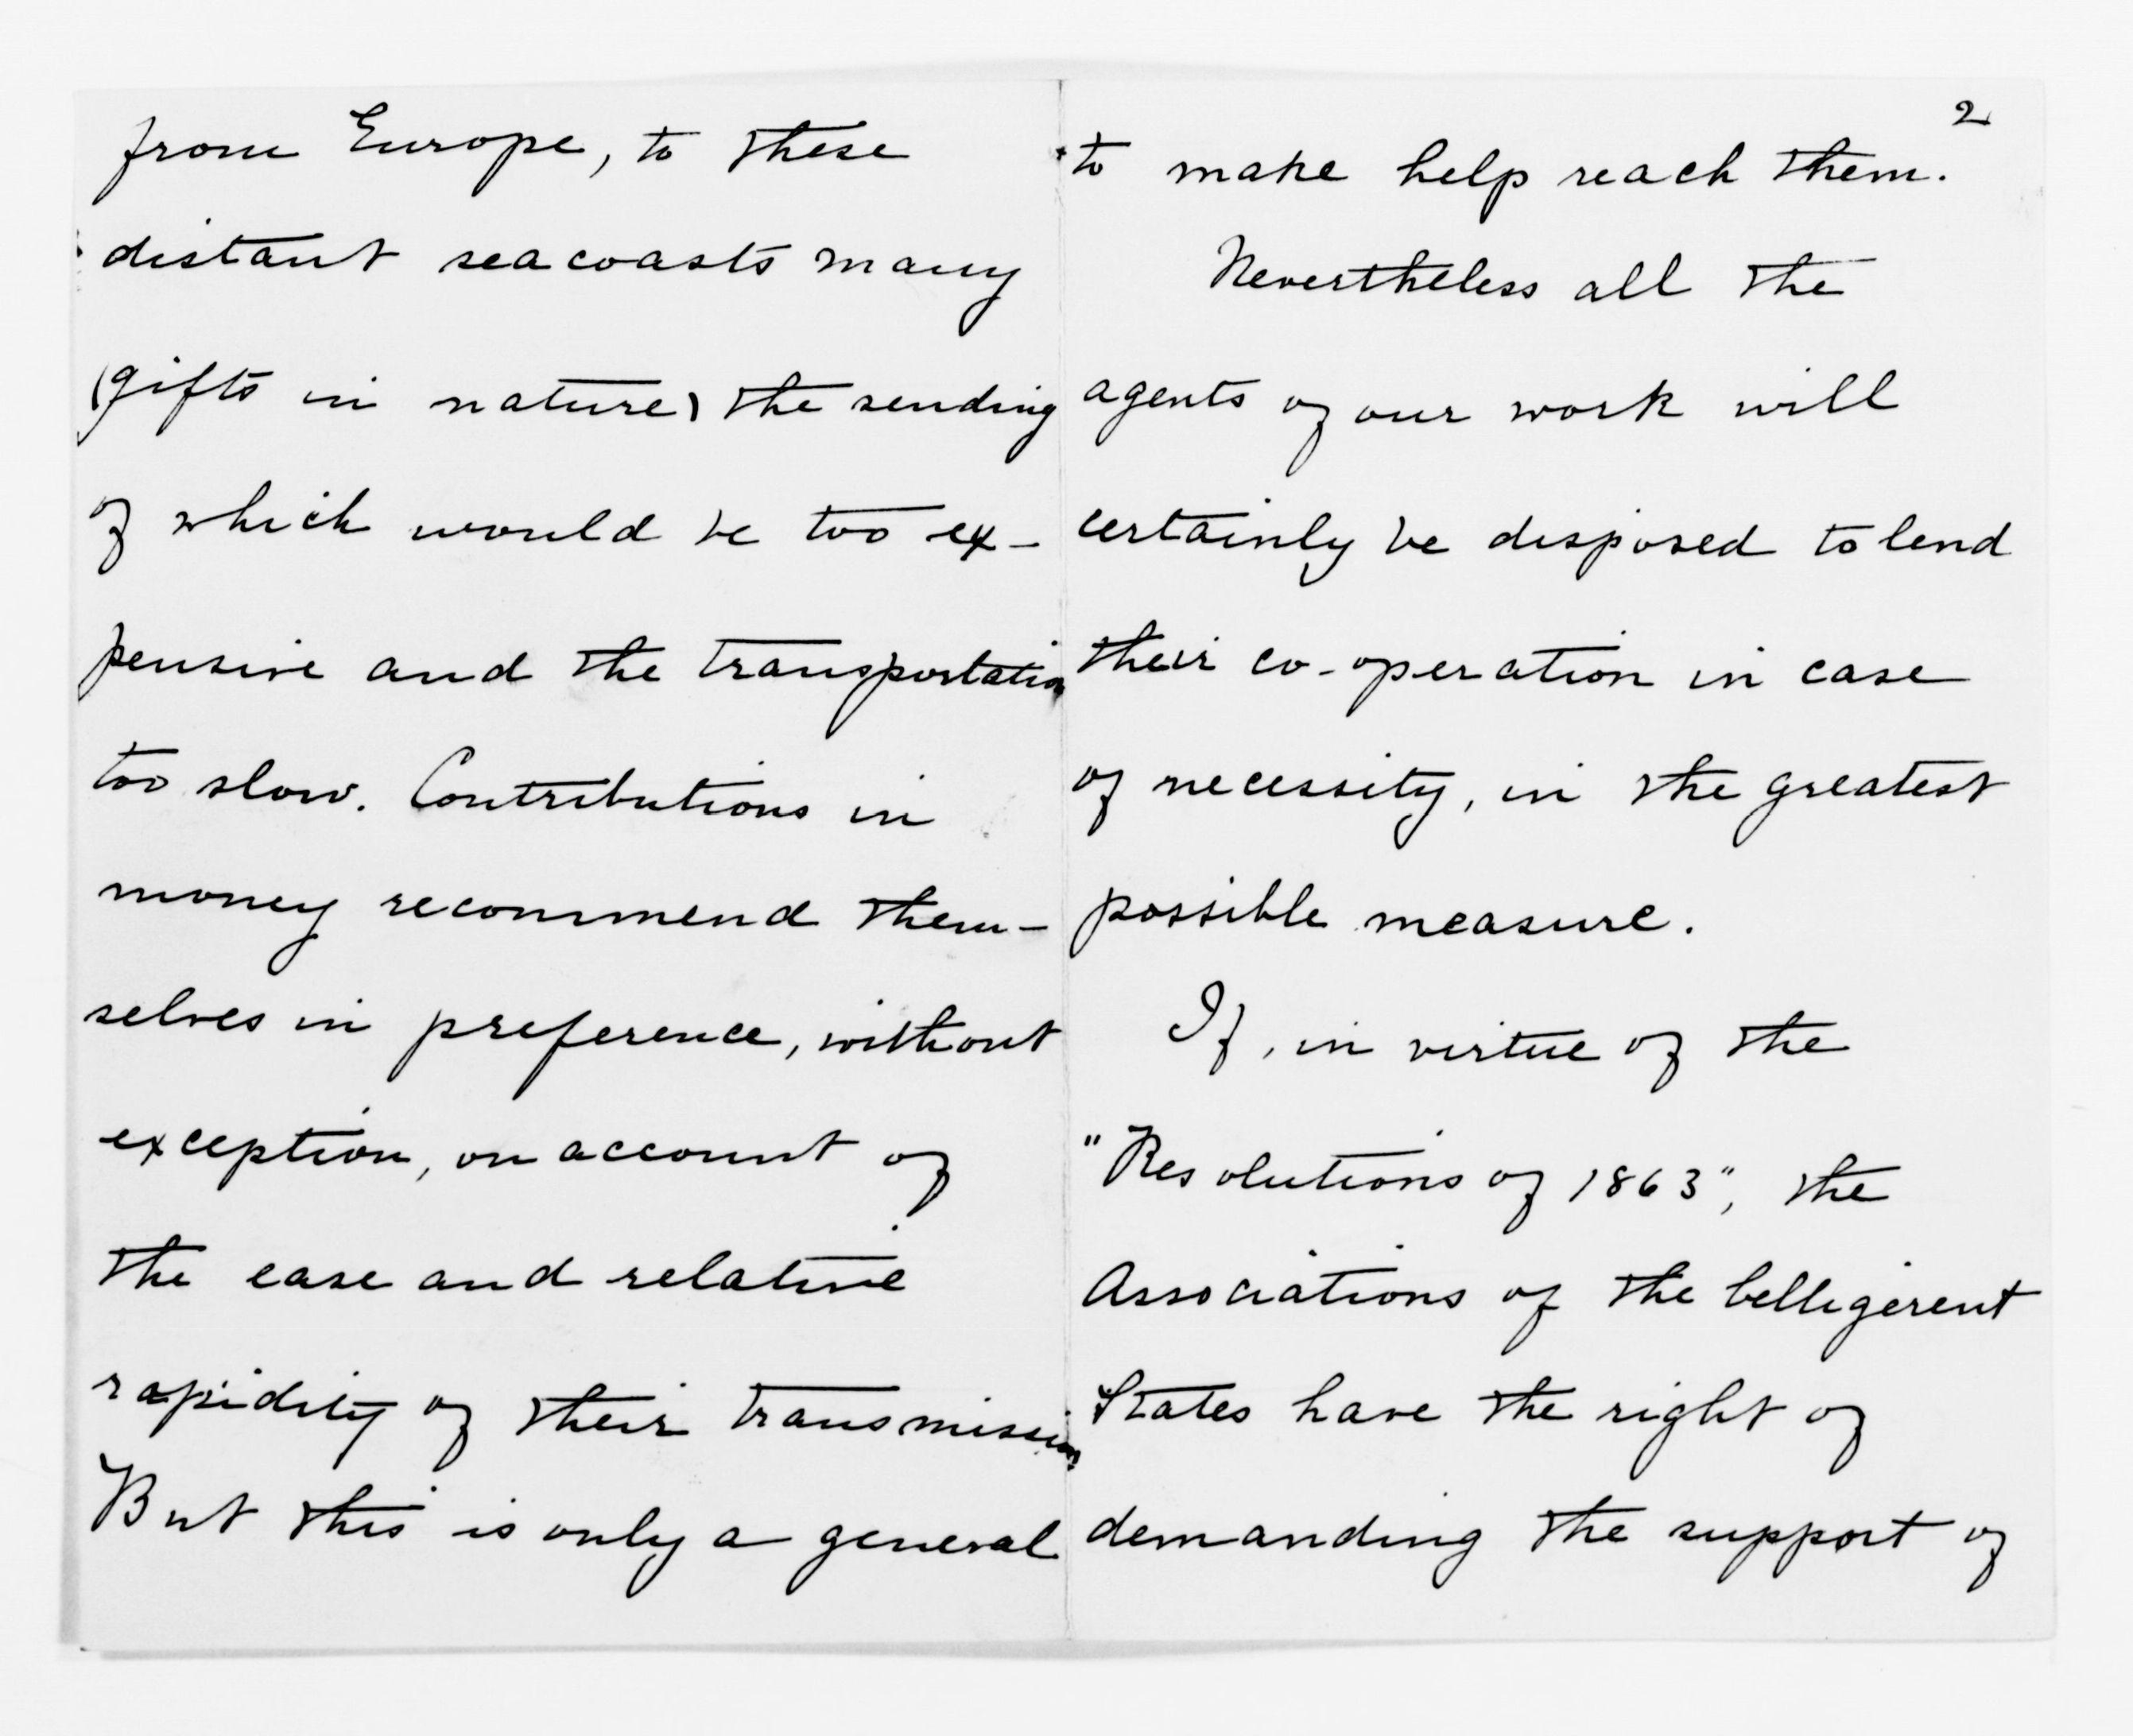 from Europe, to these
distant seacoasts many
(gifts in nature) the sending
of which would be too ex-
pensive and the transportation
too slow. Contributions in
money recommend them-
selves in preference, without
exception, on account of
the ease and relative
rapidity of their transmission
But this is only a general
2
to make help reach them.
Nevertheless all the
agents of our work will
certainly be disposed to lend
their co-operation in case
of necessity, in the greatest
possible measure.
If, in virtue of the
"Resolutions of 1863", the
Associations of the belligerent
States have the right of
demanding the support of